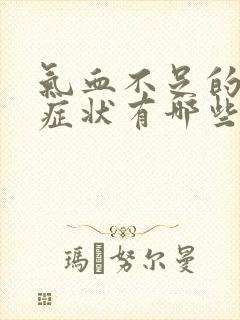 氣血不足的
症状有哪些
瑪努尔曼